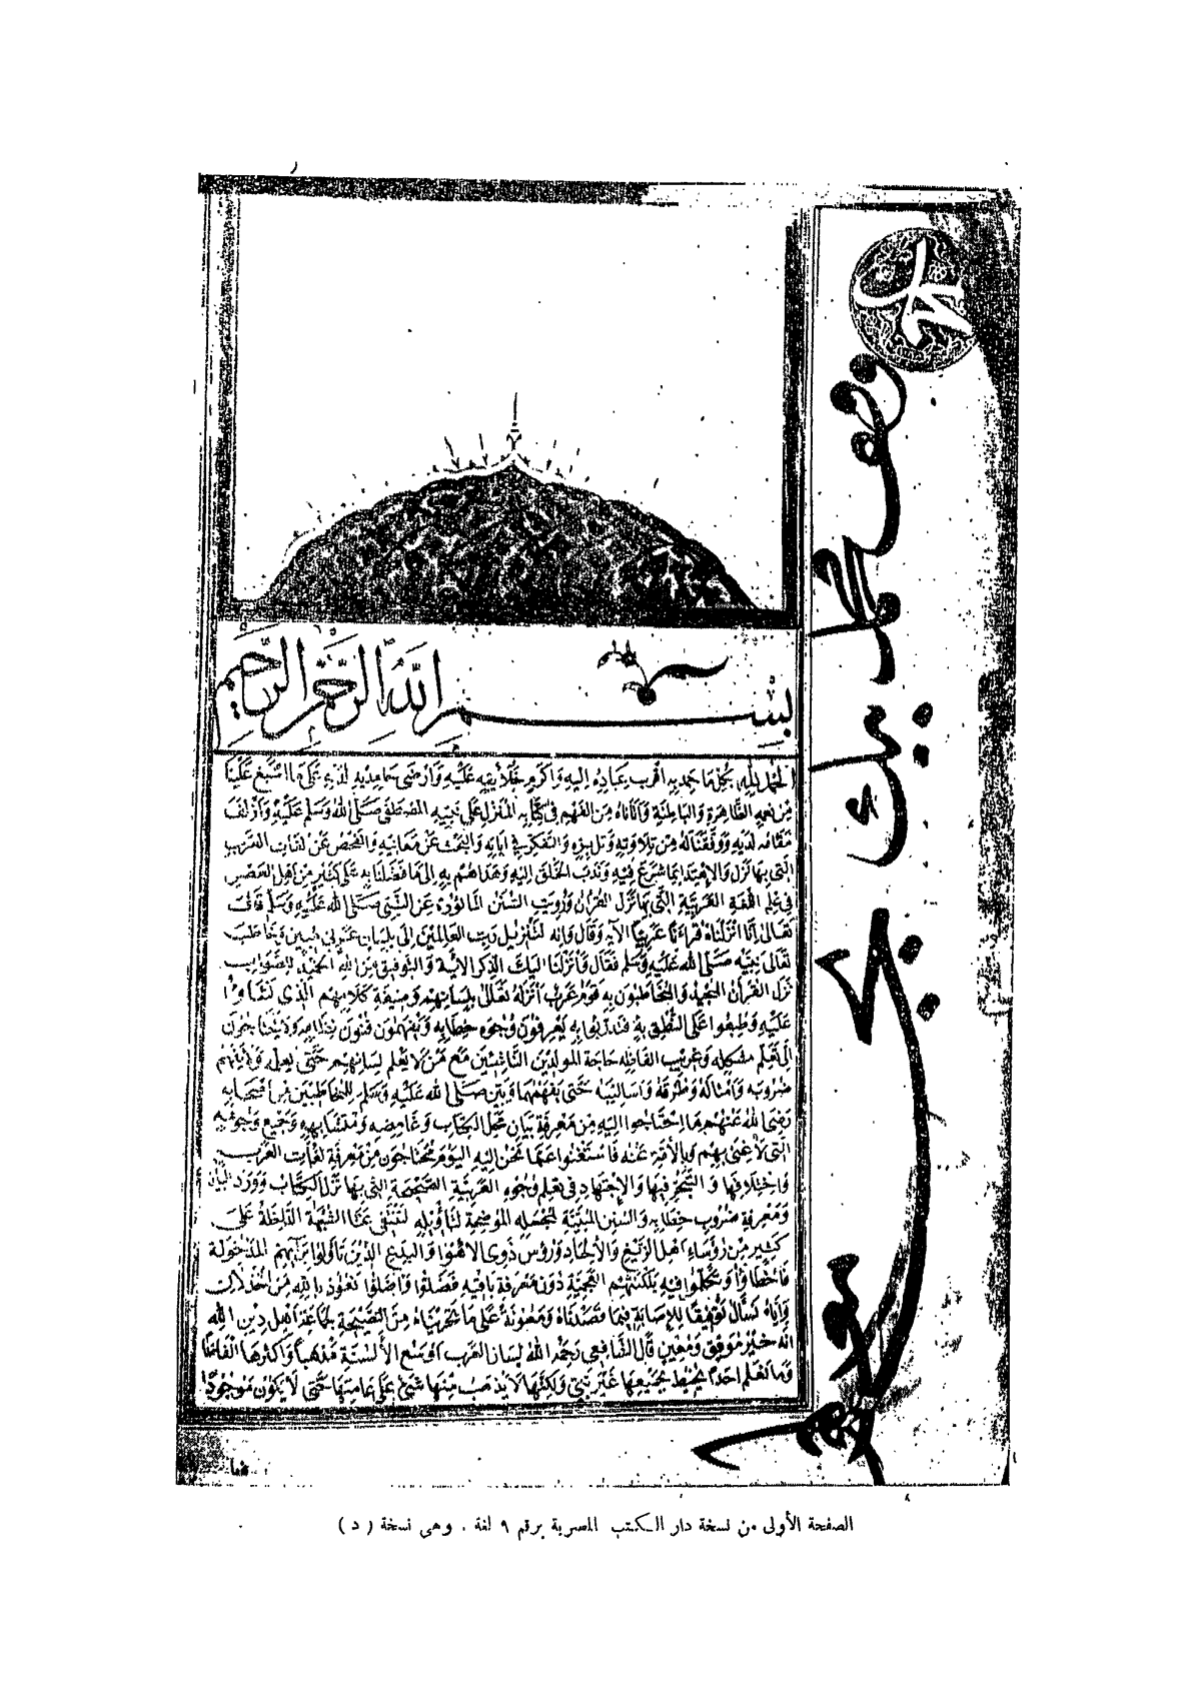 بسم الله الرحمن الرحيم
الحمد لله بكل ما حمده به اقرب عباده اليه واكرم خلائقه عليه وارضى حامديه لديه على ما اسبغ علينا
من نعمه الظاهرة والباطنة وآتاناه من الفهم في كتابه المنزل على نبيه المصطفى صلى الله وسلم عليه وازلف
مقامه لديه ووفقنا له من تلاوته وتدبره والتفكر في آياته والبحث عن معانيه والفحص عن لغات العرب
التي بها نزل والاهتداء بما شرع فيه وندب الخلق اليه وهداهم به الى ما فضلنا به على كثير من اهل العصر
في علم اللغة العربية التي بها نزل القرآن وردت السنن المأثورة عن النبي صلى الله عليه وسلم قال
تعالى انا انزلناه قرءانا عربيا الآية وقال وانه لتنزيل رب العالمين الى بلسان عربي مبين وخاطب
تعالى نبيه صلى الله عليه وسلم فقال وانزلنا اليك الذكر الآية والتوفيق من الله المجيد للصواب
نزل القرآن المجيد والمخاطبون به قوم عرب أنزله تعالى بلسانهم وصيغة كلامهم الذي نشاوا
عليه وطبعوا على النطق به فتدربوا به يعرفون وجوه خطابه ويفهمون فنون نظامه ولا يحتاجون
الى تعلم مشكله وغريب الفاظه حاجة المولدين الناشئين مع من لا يعلم لسانهم حتى يعلمه ولا يفهم
ضروبه وامثاله وطرقه واساليبه حتى يفهمها وبين صلى الله عليه وسلم للمخاطبين من أصحابه
رضى الله عنهم ما احتاجوا اليه من معرفة بيان مجمل الكتاب وغامضه ومتشابهه وجميع وجوهه
التي لا غنى بهم وبالأمة عنه فاستغنوا عما نحن اليه اليوم محتاجون من معرفة لغات العرب
واختلافها والتبحر فيها والاجتهاد في تعلم وجوه العربية الصحيحة التي بها نزل الكتاب وورد البيان
ومعرفة ضروب خطابه والسنن المبينة لمجمله الموضحة لتأويله لتنتفى عنا الشبهة الداخلة على
كثير من رؤساء اهل الزيغ والالحاد ورؤس ذوى الاهوا والبدع الذين تاولوا بآرائهم المدخولة
فاخطأوا وتكلموا فيه بلكنتهم العجمية دون معرفة ثاقبة فضلوا واضلوا نعوذ بالله من الخذلان
واياه نسأل توفيقا للاصابة فيما قصدناه ومعونة على ما تحريناه من النصيحة لجماعة اهل دين الله
انه خير موفق ومعين قال الشافعي رحمه الله لسان العرب اوسع الألسنة مذهبا واكثرها الفاظا
وما نعلم احدا يحيط بجميعها غير نبي ولكنها لا يذهب منها شئ على عامتها حتى لا يكون موجودا
الصفحة الأولى من نسخة دار الكتب المصرية برقم ٩ لغة ، وهى نسخة ( د )